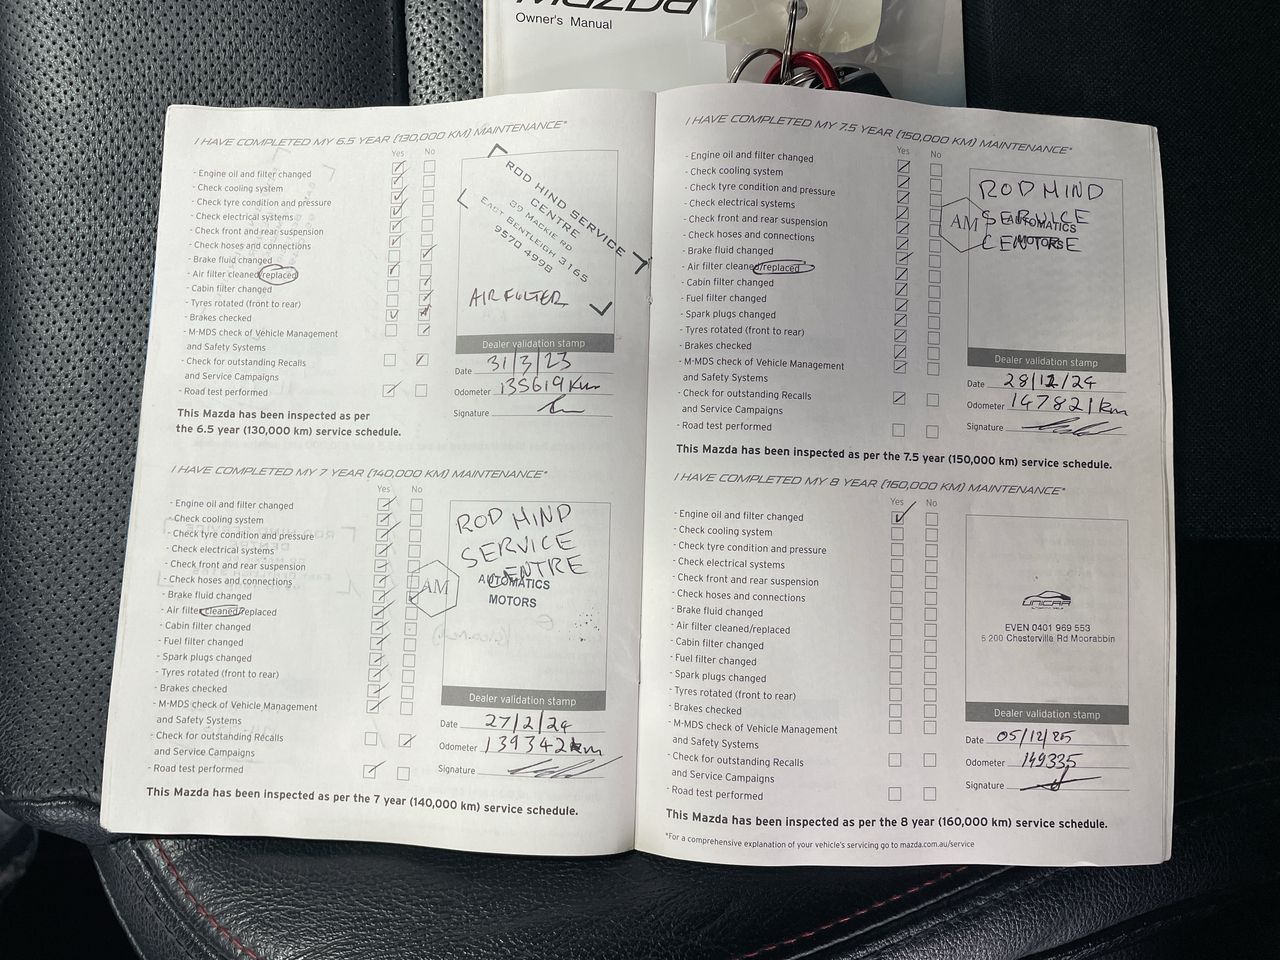 MAZDA
Owner's Manual
I HAVE COMPLETED MY 6.5 YEAR (130,000 KM) MAINTENANCE*
Yes No
- Engine oil and filter changed
- Check cooling system
- Check tyre condition and pressure
- Check electrical systems
- Check front and rear suspension
- Check hoses and connections
- Brake fluid changed
- Air filter cleaned/replaced
- Cabin filter changed
- Tyres rotated (front to rear)
- Brakes checked
- M-MDS check of Vehicle Management
and Safety Systems
- Check for outstanding Recalls
and Service Campaigns
- Road test performed
ROD HIND SERVICE
CENTRE
39 MACKIE RD
EAST BENTLEIGH 3165
9570 4998
AIR FILTER
Dealer validation stamp
Date 31/3/23
Odometer 135619 Km
Signature
This Mazda has been inspected as per
the 6.5 year (130,000 km) service schedule.
I HAVE COMPLETED MY 7 YEAR (140,000 KM) MAINTENANCE*
Yes No
- Engine oil and filter changed
- Check cooling system
- Check tyre condition and pressure
- Check electrical systems
- Check front and rear suspension
- Check hoses and connections
- Brake fluid changed
- Air filter cleaned/replaced
- Cabin filter changed
- Fuel filter changed
- Spark plugs changed
- Tyres rotated (front to rear)
- Brakes checked
- M-MDS check of Vehicle Management
and Safety Systems
- Check for outstanding Recalls
and Service Campaigns
- Road test performed
ROD HIND
SERVICE
CENTRE
AM AUTOMATICS
MOTORS
Dealer validation stamp
Date 27/2/24
Odometer 139342 km
Signature
This Mazda has been inspected as per the 7 year (140,000 km) service schedule.
I HAVE COMPLETED MY 7.5 YEAR (150,000 KM) MAINTENANCE*
Yes No
- Engine oil and filter changed
- Check cooling system
- Check tyre condition and pressure
- Check electrical systems
- Check front and rear suspension
- Check hoses and connections
- Brake fluid changed
- Air filter cleaned/replaced
- Cabin filter changed
- Fuel filter changed
- Spark plugs changed
- Tyres rotated (front to rear)
- Brakes checked
- M-MDS check of Vehicle Management
and Safety Systems
- Check for outstanding Recalls
and Service Campaigns
- Road test performed
ROD HIND
SERVICE
CENTRE
AM AUTOMATICS
MOTORS
Dealer validation stamp
Date 28/12/24
Odometer 147821 km
Signature
This Mazda has been inspected as per the 7.5 year (150,000 km) service schedule.
I HAVE COMPLETED MY 8 YEAR (160,000 KM) MAINTENANCE*
Yes No
- Engine oil and filter changed
- Check cooling system
- Check tyre condition and pressure
- Check electrical systems
- Check front and rear suspension
- Check hoses and connections
- Brake fluid changed
- Air filter cleaned/replaced
- Cabin filter changed
- Fuel filter changed
- Spark plugs changed
- Tyres rotated (front to rear)
- Brakes checked
- M-MDS check of Vehicle Management
and Safety Systems
- Check for outstanding Recalls
and Service Campaigns
- Road test performed
UNICAR
EVEN 0401 969 553
5 200 Chesterville Rd Moorabbin
Dealer validation stamp
Date 05/12/25
Odometer 149335
Signature
This Mazda has been inspected as per the 8 year (160,000 km) service schedule.
*For a comprehensive explanation of your vehicle's servicing go to mazda.com.au/service